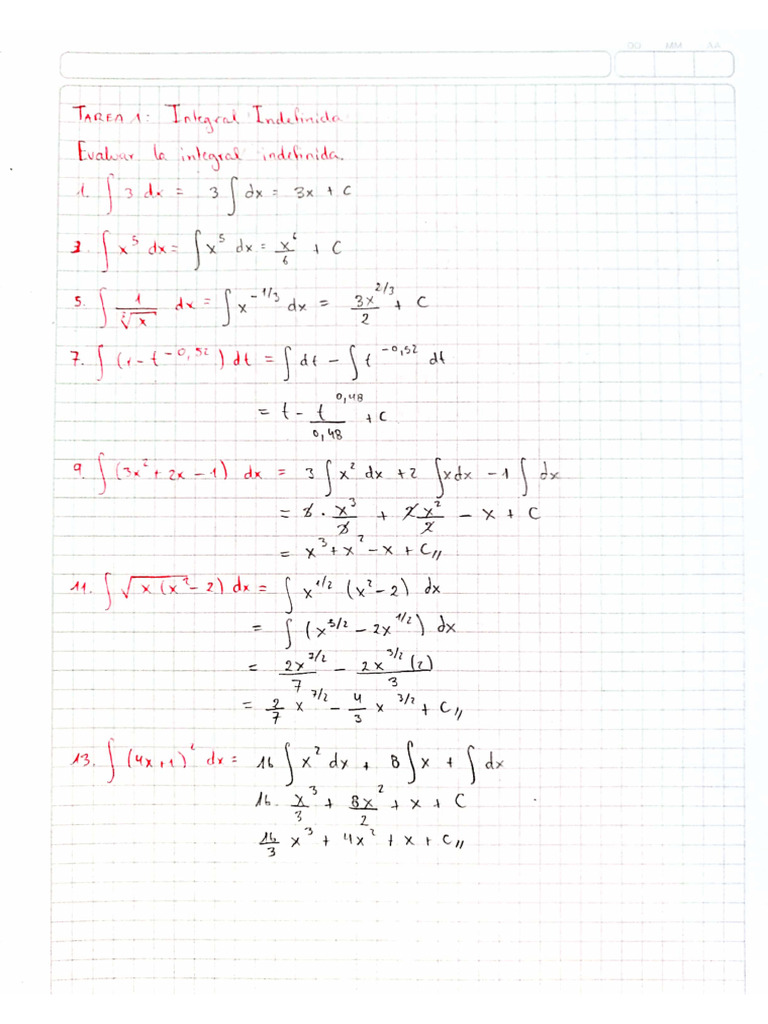 DD MM AA
TAREA 1: Integral Indefinida
Evaluar la integral indefinida.
1. ∫ 3 dx = 3 ∫ dx = 3x + C
3. ∫ x⁵ dx = ∫ x⁵ dx = x⁶/6 + C
5. ∫ 1/∛x dx = ∫ x^(-1/3) dx = 3x^(2/3)/2 + C
7. ∫ (1 - t^(-0,52)) dt = ∫ dt - ∫ t^(-0,52) dt
= t - t^(0,48)/0,48 + C
9. ∫ (3x² + 2x - 1) dx = 3 ∫ x² dx + 2 ∫ x dx - 1 ∫ dx
= 3 · x³/3 + 2x²/2 - x + C
= x³ + x² - x + C //
11. ∫ √x (x² - 2) dx = ∫ x^(1/2) (x² - 2) dx
= ∫ (x^(5/2) - 2x^(1/2)) dx
= 2x^(7/2)/7 - 2x^(3/2) (2)/3
= 2/7 x^(7/2) - 4/3 x^(3/2) + C //
13. ∫ (4x + 1)² dx = 16 ∫ x² dx + 8 ∫ x + ∫ dx
16 · x³/3 + 8x²/2 + x + C
16/3 x³ + 4x² + x + C //